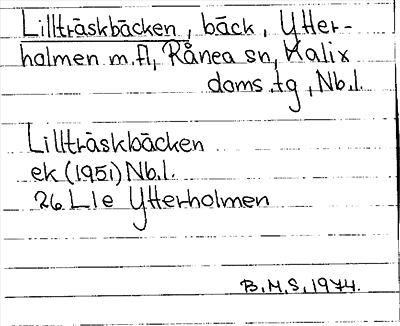 Lillträskbäcken, bäck, Ytter-
holmen m.fl, Rånea sn, Kalix
doms.tg, Nb.l.
Lillträskbäcken
ek (1951) Nb.l.
26 L 1e Ytterholmen
B.M.S, 1974.